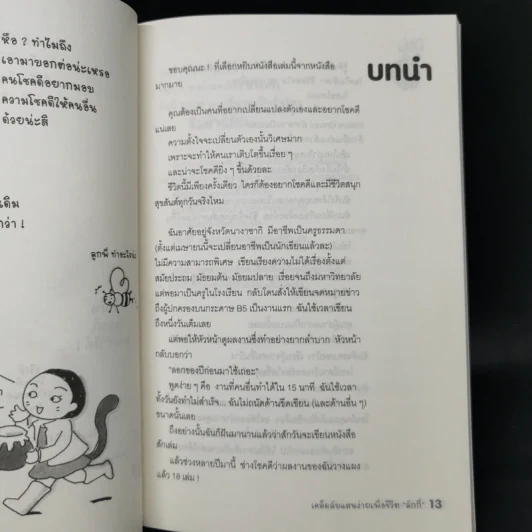 หือ ? ทำไมถึง
เอามาบอกต่อน่ะเหรอ
คนโชคดีอยากมอบ
ความโชคดีให้คนอื่น
ด้วยน่ะสิ
เดิม
กว่า !
ลูกพี่
บทนำ
ขอบคุณนะ ! ที่เลือกหยิบหนังสือเล่มนี้จากหนังสือ
มากมาย
คุณต้องเป็นคนที่อยากเปลี่ยนแปลงตัวเองและอยากโชคดี
แน่เลย
ความตั้งใจจะเปลี่ยนตัวเองนั้นวิเศษมาก
เพราะจะทำให้คนเราเติบโตขึ้นเรื่อย ๆ
และน่าจะโชคดียิ่ง ๆ ขึ้นด้วยละ
ชีวิตนี้มีเพียงครั้งเดียว ใครก็ต้องอยากโชคดีและมีชีวิตสนุก
สุขสันต์ทุกวันจริงไหม
ฉันอาศัยอยู่จังหวัดนางาซากิ มีอาชีพเป็นครูธรรมดา
(ตั้งแต่เมษายนนี้จะเปลี่ยนอาชีพเป็นนักเขียนแล้วละ)
ไม่มีความสามารถพิเศษ เขียนเรียงความไม่ได้เรื่องตั้งแต่
สมัยประถม มัธยมต้น มัธยมปลาย เรื่อยจนถึงมหาวิทยาลัย
แต่พอมาเป็นครูในโรงเรียน กลับโดนสั่งให้เขียนจดหมายข่าว
ถึงผู้ปกครองบนกระดาษ B5 เป็นงานแรก ฉันใช้เวลาเขียน
ถึงหนึ่งวันเต็มเลย
แต่พอให้หัวหน้าดูผลงานซึ่งทำอย่างยากลำบาก หัวหน้า
กลับบอกว่า
"ลอกของปีก่อนมาใช้เถอะ"
พูดง่าย ๆ คือ งานที่คนอื่นทำได้ใน 15 นาที ฉันใช้เวลา
ทั้งวันยังทำไม่สำเร็จ... ฉันไม่ถนัดด้านขีดเขียน (และด้านอื่น ๆ)
ขนาดนั้นเลย
ถึงอย่างนั้นฉันก็ฝันมานานแล้วว่าสักวันจะเขียนหนังสือ
สักเล่ม
แล้วช่วงหลายปีมานี้ ช่างโชคดีว่าผลงานของฉันวางแผง
แล้ว 18 เล่ม !
เคล็ดลับแสนง่ายเพื่อชีวิต "ลักกี้" 13